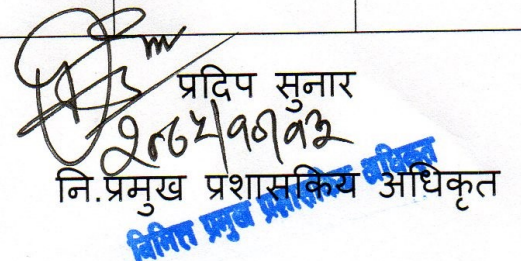 प्रदिप सुनार
नि.प्रमुख प्रशासकिय अधिकृत
निमित्त प्रमुख प्रशासकिय अधिकृत